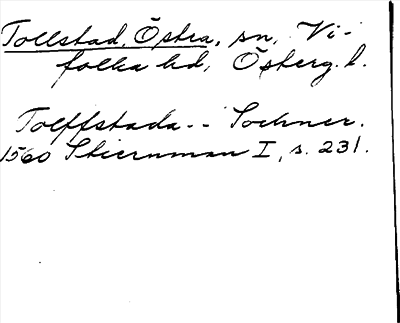 Tollstad, Östra, sn, Vi-
folka hd, Österg. l.
Tolffstada -- Sochner.
1560 Stiernman I, s. 231.